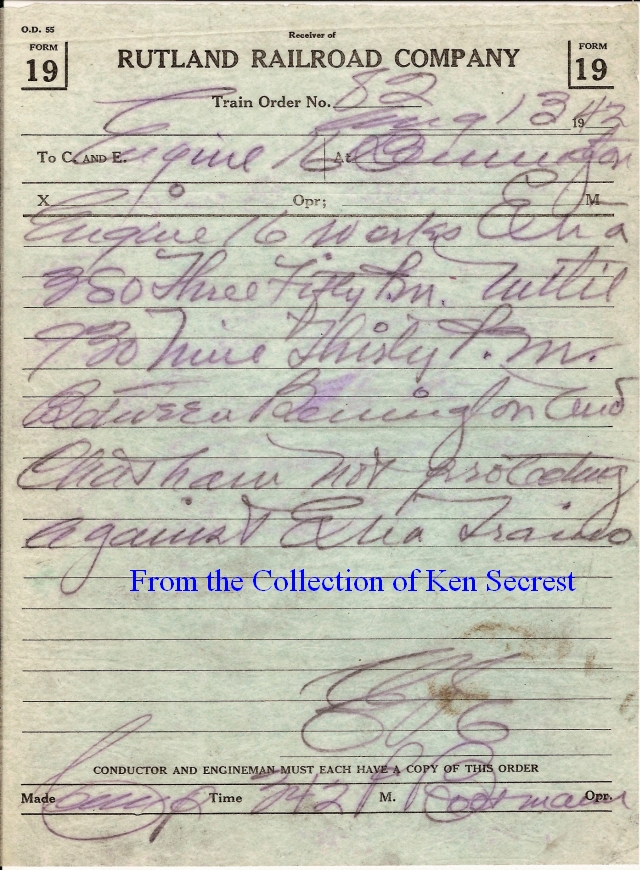 O.D. 55
Receiver of
FORM 19 RUTLAND RAILROAD COMPANY FORM 19
Train Order No. 82
Aug 13 1942
To C. AND E. Engine 16 At Bennington
X Opr; M
Engine 16 works Extra
350 Three Fifty P.m. until
930 Nine Thirty P.m.
Between Bennington and
Chatham not protecting
against Extra Trains
From the Collection of Ken Secrest
CONDUCTOR AND ENGINEMAN MUST EACH HAVE A COPY OF THIS ORDER
Made Comp Time 342 P M. Opr.